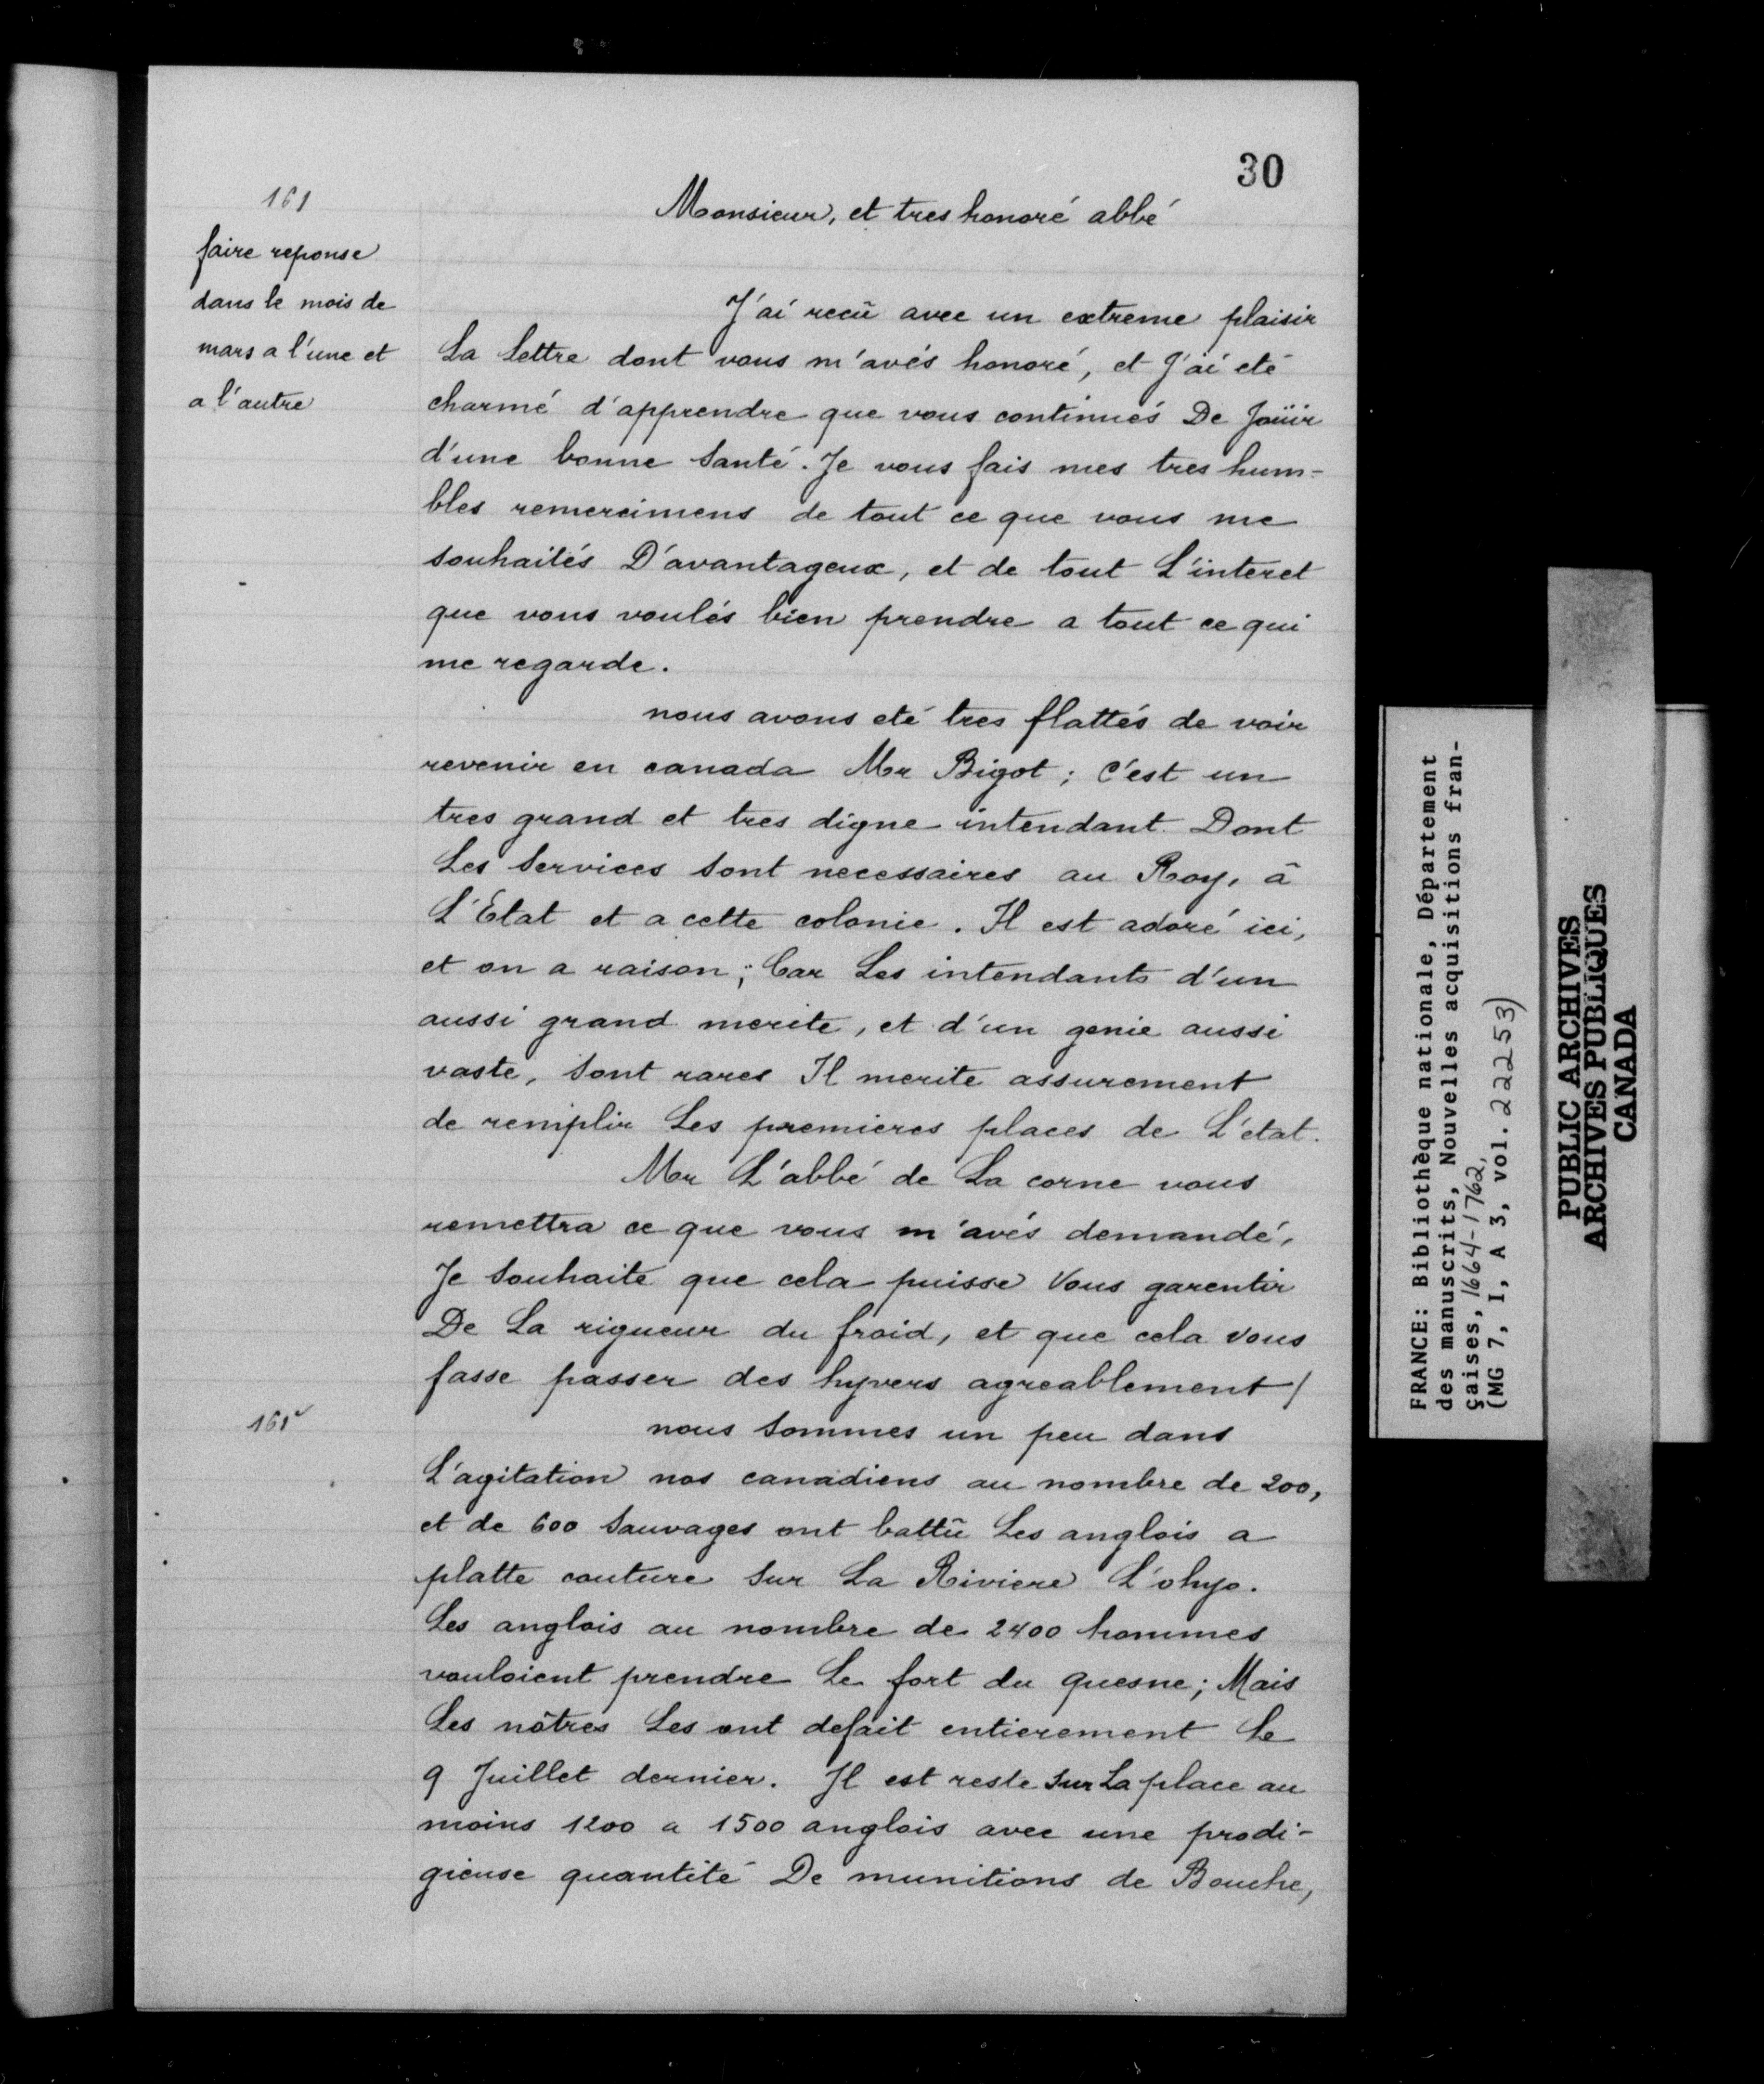 30
161
Monsieur, et tres honoré abbé
faire reponse
dans le mois de
mars a l'une et
a l'autre
J'ai recũ avec un extreme plaisir
La Lettre dont vous m'avés honoré, et J'ai eté
charmé d'apprendre que vous continués De Joüir
d'une bonne Santé. Je vous fais mes tres hum-
bles remercimens de tout ce que vous me
souhaités D'avantageux, et de tout L'interet
que vous voulés bien prendre a tout ce qui
me regarde.
nous avons eté tres flattés de voir
revenir en canada Mr Bigot; C'est un
tres grand et tres digne intendant Dont
Les Services Sont necessaires au Roy, ã
L'Etat et a cette colonie. Il est adoré ici,
et on a raison; Car Les intendants d'un
aussi grand merite, et d'un genie aussi
vaste, Sont rares Il merite assurement
de remplir Les premieres places de L'etat.
Mr L'abbé de La corne vous
remettra ce que vous m'avés demandé,
Je Souhaite que cela puisse Vous garentir
De La rigueur du froid, et que cela vous
fasse passer des hyvers agreablement/
161v
nous Sommes un peu dans
L'agitation nos canadiens au nombre de 200,
et de 600 Sauvages ont battũ Les anglois a
platte couture Sur La Riviere L'ohyo.
Les anglois au nombre de 2400 hommes
vouloient prendre Le fort du quesne; Mais
Les nôtres Les ont defait entierement Le
9 Juillet dernier. Il est reste Sur La place au
moins 1200 a 1500 anglois avec une prodi-
gieuse quantité De munitions de Bouche,
FRANCE: Bibliothèque nationale, Département
des manuscrits, Nouvelles acquisitions fran-
çaises, 1664-1762,
(MG 7, I, A 3, vol. 22253)
PUBLIC ARCHIVES
ARCHIVES PUBLIQUES
CANADA